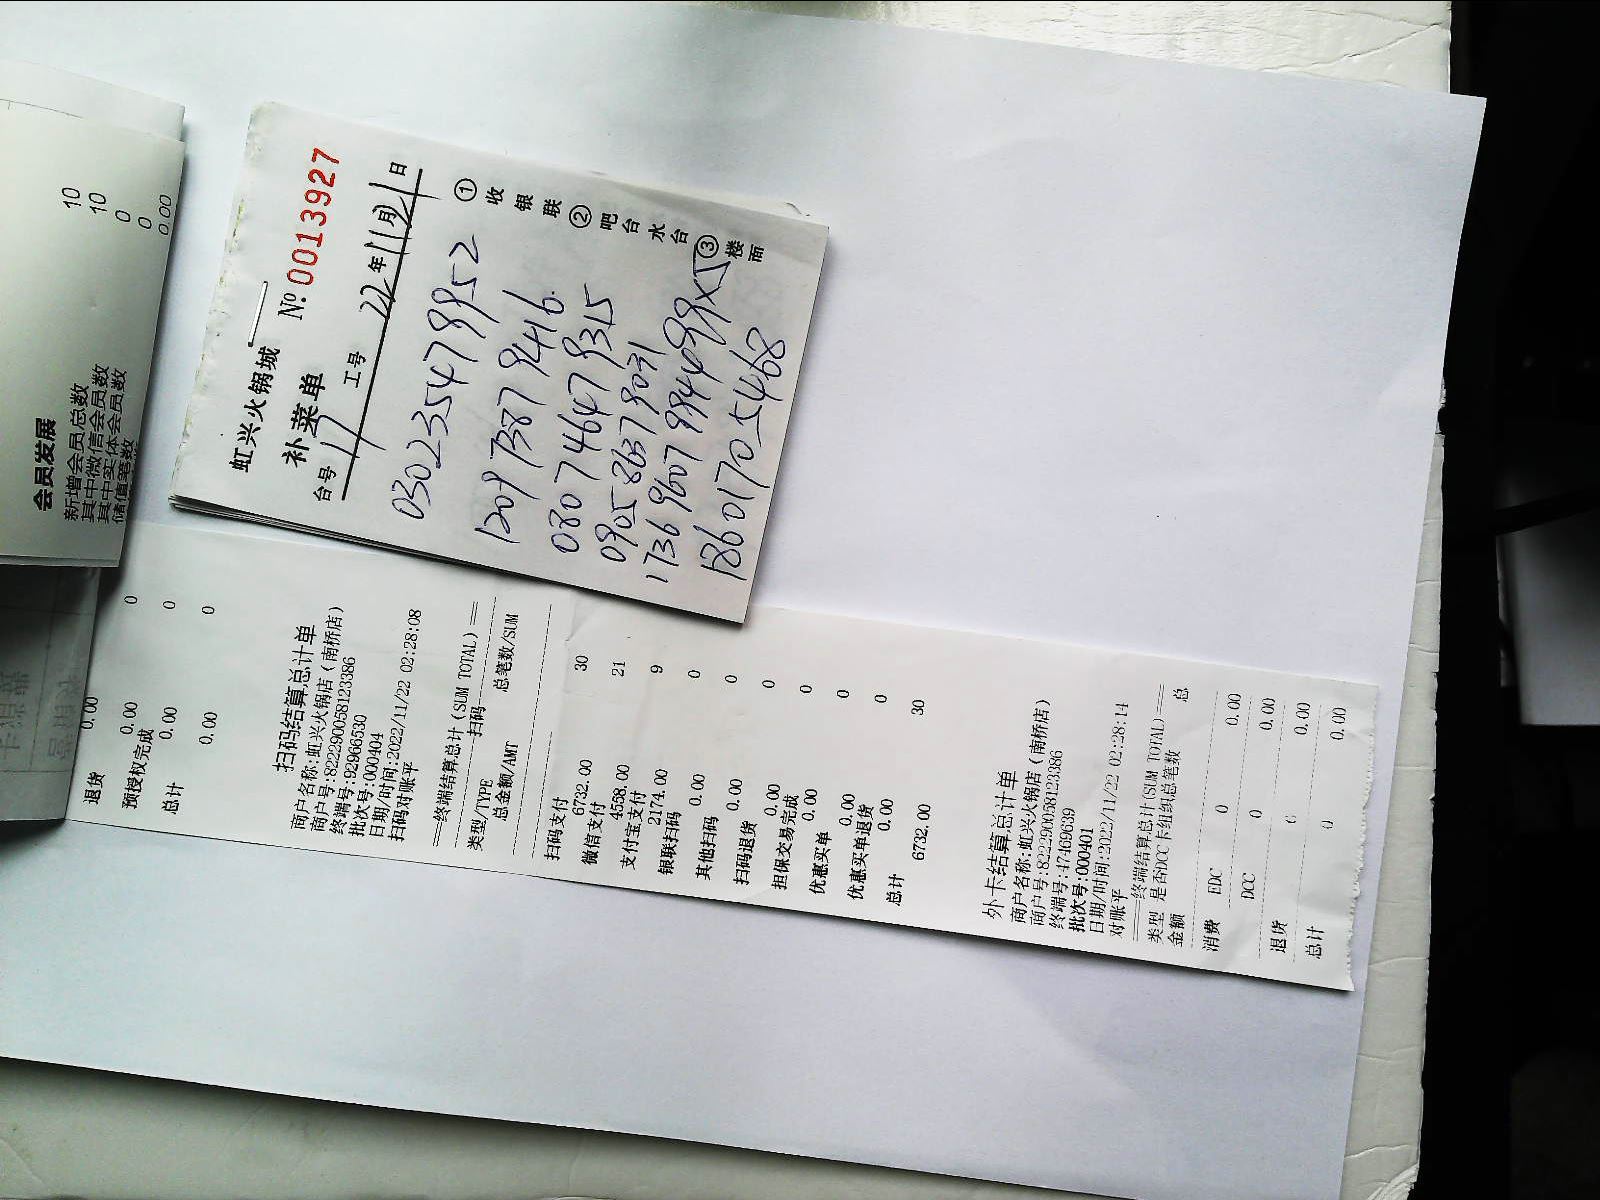 会员发展
新增会员总数 10
其中微信会员数 10
其中实体会员数 0
储值笔数 0
0.00
虹兴火锅城
补菜单 №0013927
台号 17 工号 22年11月21日
① 收银联 ② 吧台水台 ③ 楼面
退货 0
0.00
预授权完成 0
0.00
总计 0
0.00
扫码结算总计单
商户名称:虹兴火锅店(南桥店)
商户号:822290058123386
终端号:92966530
批次号:000404
日期/时间:2022/11/22 02:28:08
扫码对账平
==终端结算总计(SUM TOTAL)==
类型/TYPE 扫码
总金额/AMT 总笔数/SUM
扫码支付 30
6732.00
微信支付 21
4558.00
支付宝支付 9
2174.00
银联扫码 0
0.00
其他扫码 0
0.00
扫码退货 0
0.00
担保交易完成 0
0.00
优惠买单 0
0.00
优惠买单退货 0
0.00
总计 30
6732.00
外卡结算总计单
商户名称:虹兴火锅店(南桥店)
商户号:822290058123386
终端号:47469639
批次号:000401
日期/时间:2022/11/22 02:28:14
对账平
==终端结算总计(SUM TOTAL)==
类型 是否DCC 卡组织总笔数 总
金额
消费 EDC 0 0.00
DCC 0 0.00
退货 0 0.00
总计 0 0.00